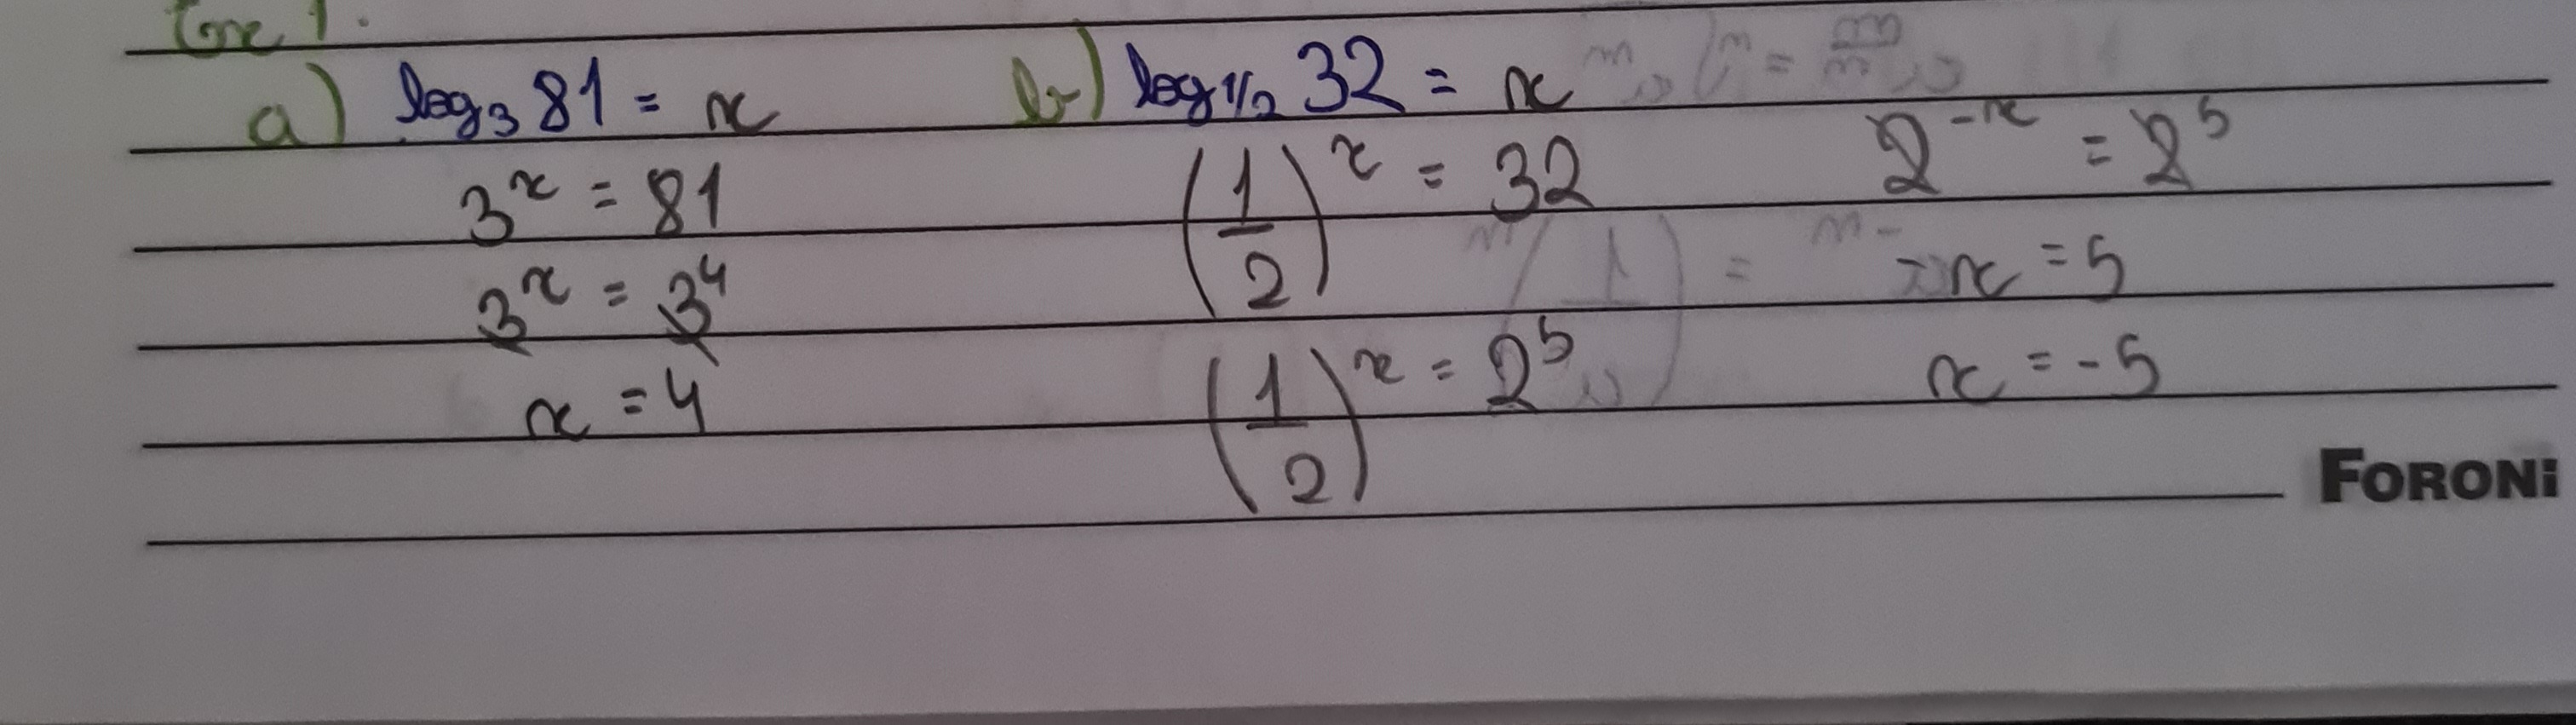 a) log₃ 81 = x
3ˣ = 81
3ˣ = 3⁴
x = 4
b) log 1/2 32 = x
(1/2)ˣ = 32
(1/2)ˣ = 2⁵
2⁻ˣ = 2⁵
-x = 5
x = -5
FORONi